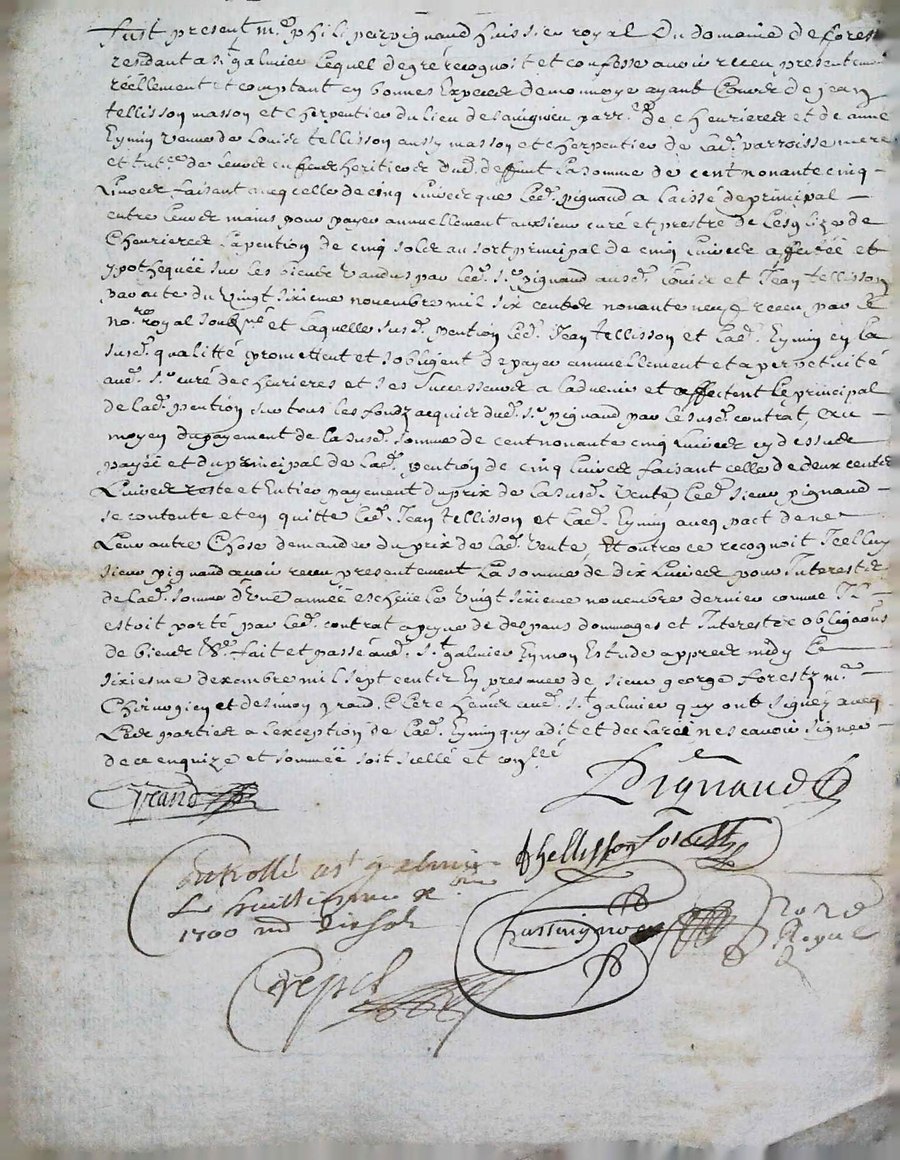 fust present m.e philip pignaud huissier royal du domaine de forest
residant a s.t galmier lequel de gré recognoit et confesse avoir receu presentement
réellement et comptant en bonnes especes de monnoye ayant cours de jean
tellisson masson et cherpentier du lieu de parr.e de chevrieres et de anne
Eymin veuve de Louis tellisson aussy masson et cherpentier de lad. parroisse mere
et tut.ce de leurs enfans heritiers dud. deffunt la somme de cent nonante cinq
Livres faisant avecq celle de cinq Livres que led. pignaud a laissé de principal
entre leurs mains pour payer annuellement au sieur curé et prestre de Leglize de
Chevrieres la pention de cinq sols au sort principal de cinq Livres affectée et
ypothequée sur les biens vandus par led. s.r pignaud ausd. Louis et Jean tellisson
par acte du vingt sixieme novembre mil six centz nonante neuf receu par le
no.re royal soub.né et laquelle susd. pention led. Jean tellisson et lad. Eymin en la
susd. qualitté promettent et sobligent de payer annuellement et a perpetuité
aud. s.r curé de chevrieres et ses successeurs a ladvenir et affectent le principal
de lad. pention sur tous les fondz acquis dud. s.r pignaud par le susd. contrat, et au
moyen du payement de la susd. somme de cent nonante cinq Livres cy dessus
payéé et du principal de lad. pention de cinq Livres faisant celle de deux centz
Livres reste et entier payement du prix de la susd. vente, led. sieur pignaud
se contente et en quitte led. Jean tellisson et lad. Eymin avecq pact de ne
Leur autre chose demander du prix de lad. vente, Et outre ce recognoit Icelluy
sieur pignaud avoir receu presentement la somme de dix Livres pour Interestz
de lad. somme d'une année escheue le vingt sixieme novembre dernier comme Il
estoit porté par led. contrat a peyne de despans dommages et Interestz obliga.ons
de biens &.a fait et passé aud. s.t galmier en mon Estude apprés midy le
sixiesme dexembre mil sept centz En presance de sieur george forest m.e
Chirurgien et de simon grand Clerc aud. s.t galmier quy ont signéz avecq
Lesd. parties a lexception de lad. Eymin quy a dit et declaré ne scavoir signer
de ce enquize et sommée soit scellé et con.llé
Grand
Pignaud
Thellisson forest
Controllé a s.t galmier
Le huittieme x.bre
1700 dix sols
no.re
Royal